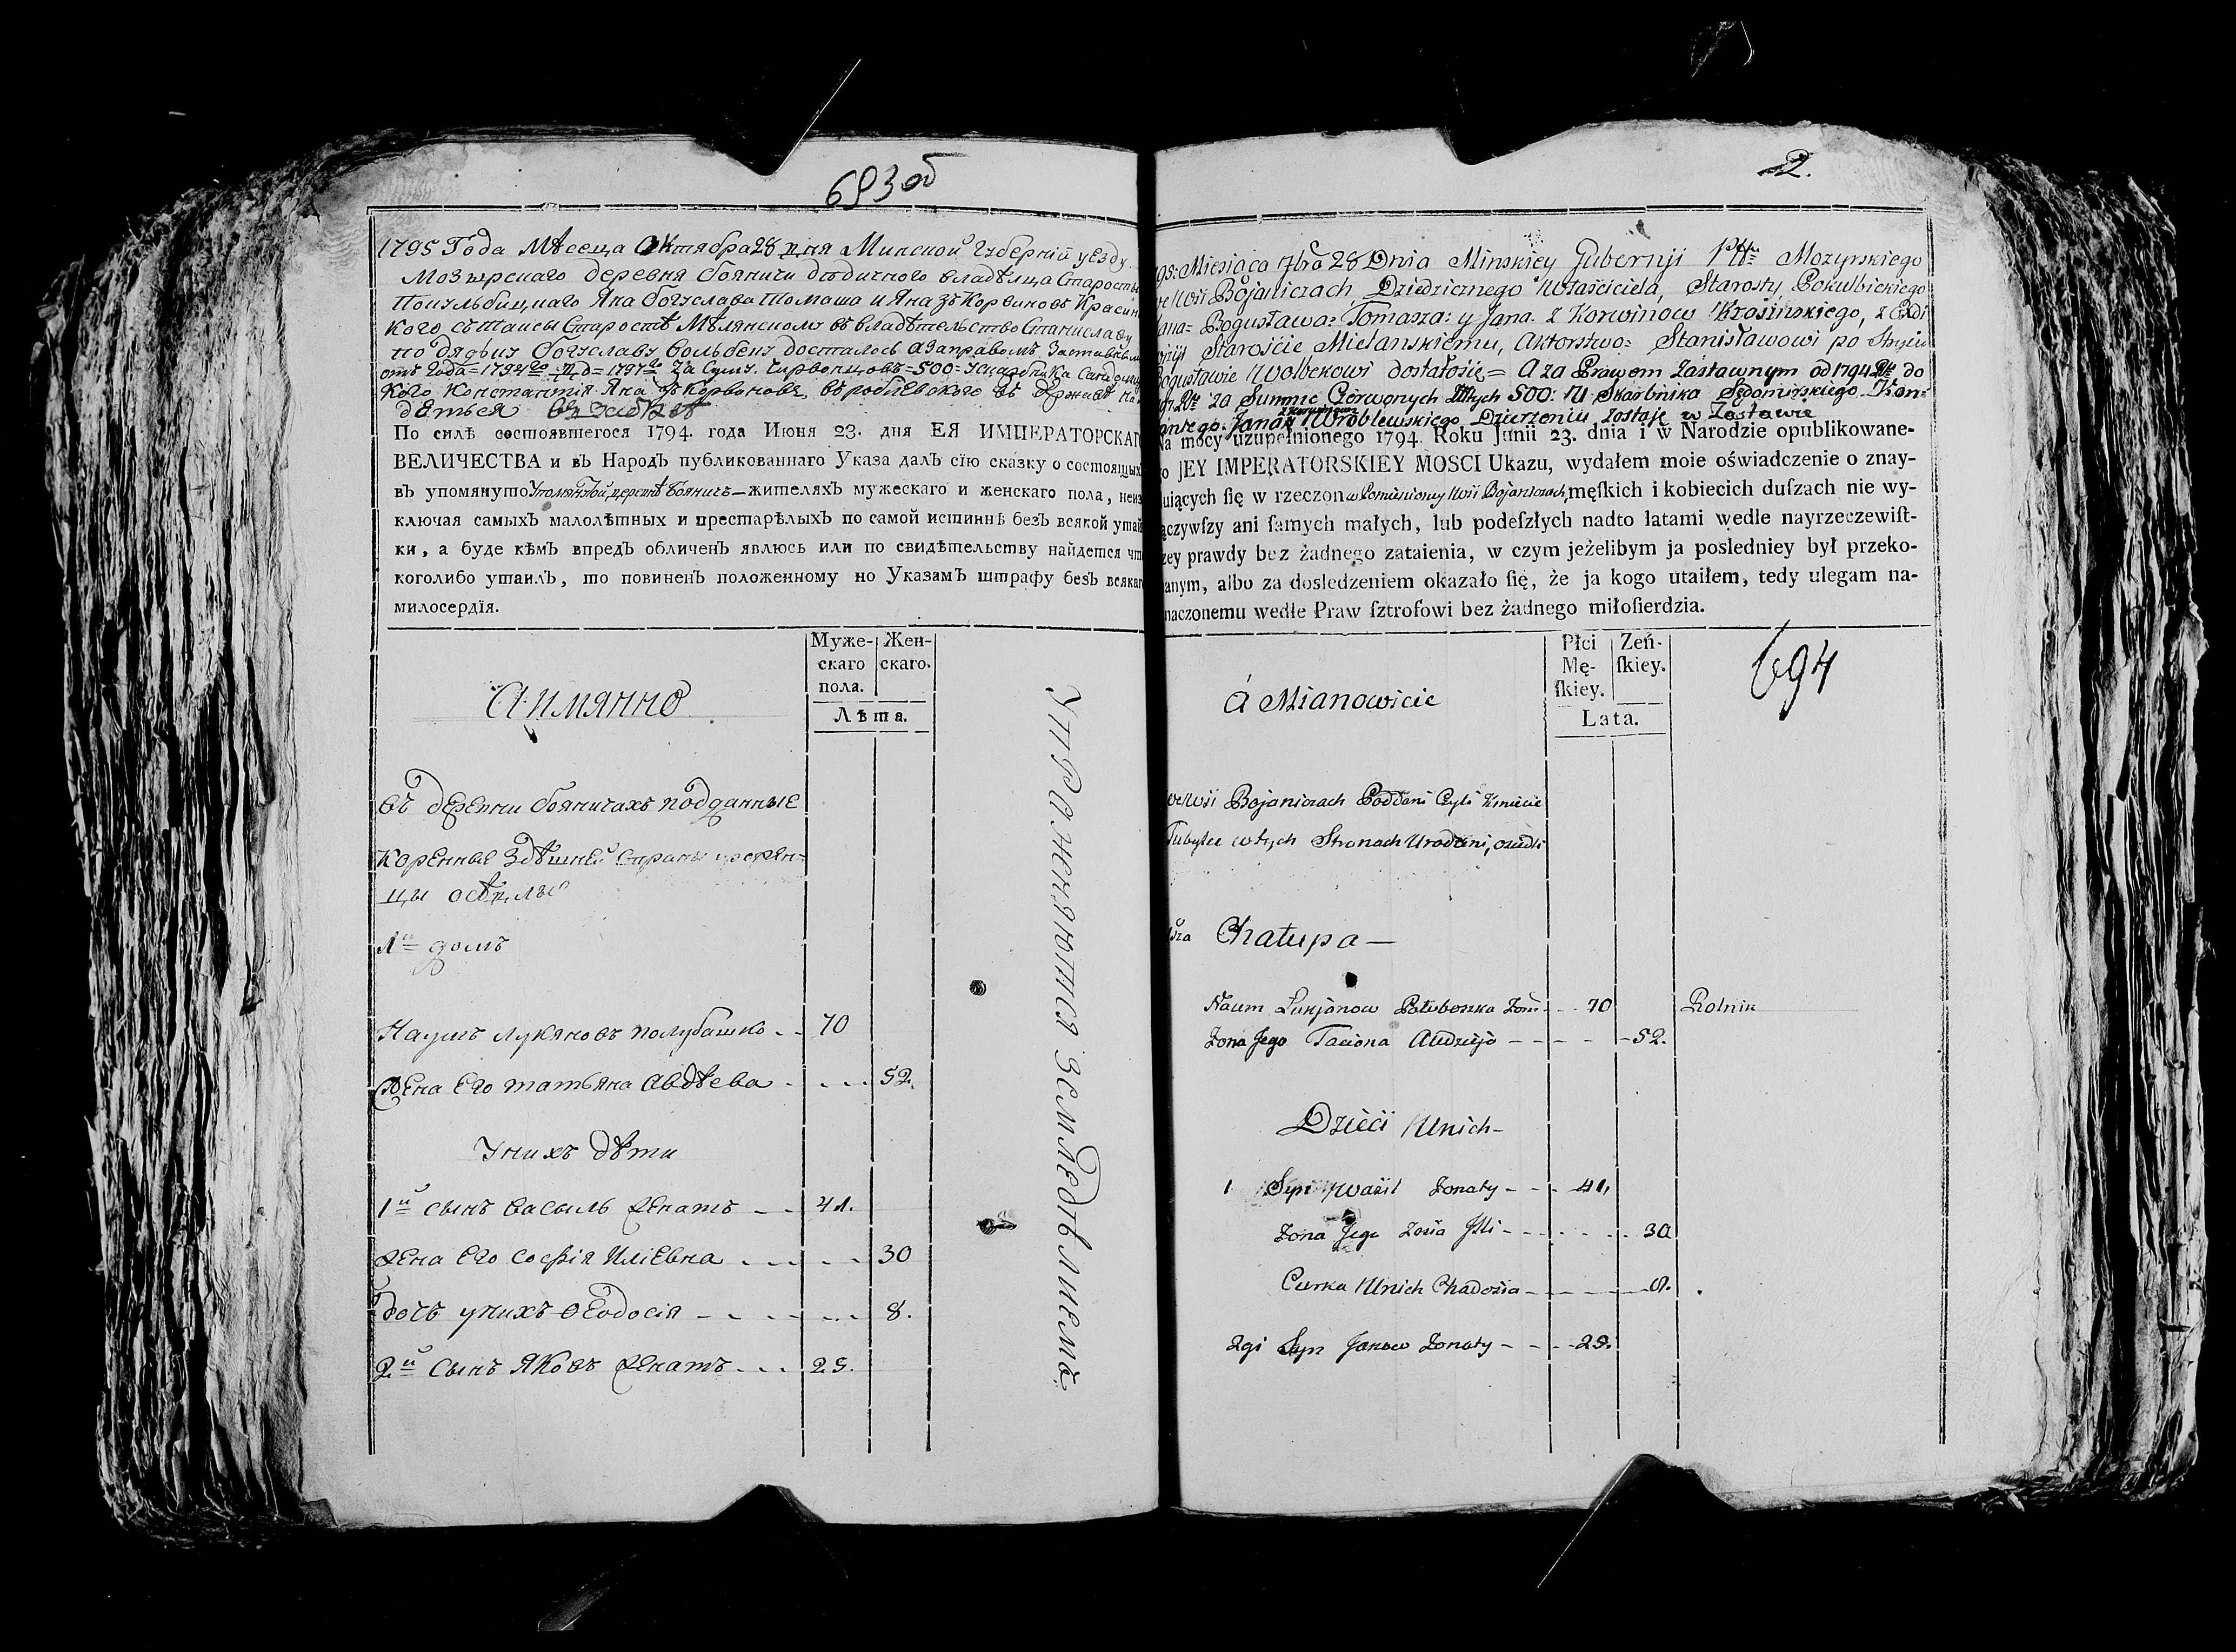 693 об
1795 Года Мѣсеца Октября 28 дня Минской Губерніи уезду
Мозырскаго деревня Бояничи дѣдичного владѣльца Старосты
Яна Богуслава Томаша и Яна зъ Корвиновъ Красин
кого, съ Старостѣ Мѣлянскому въ владѣтельство Станиславу
по дядьну Богуславу Вольбеку досталось а заправомъ Заставнымъ
отъ Года = 1794го до = 1797го За Суму Червонцовъ = 500 = Скарбника
кого Константія Яна зъ Корвиновъ, въ
дѣться
По силѣ состоявшегося 1794. года Июня 23. дня ЕЯ ИМПЕРАТОРСКАГ
ВЕЛИЧЕСТВА и въ Народъ публикованнаго Указа далъ сїю сказку о состоящихъ
въ упомянуто Упомянутой деревнѣ Бояничь — жителяхъ мужескаго и женскаго пола, неиз
ключая самыхъ малолѣтных и престарѣлыхъ по самой истиннѣ безъ всякой утай
ки, а буде кѣмъ впредъ обличенъ явлюсь или по свидѣтельству найдется что
коголибо утаилъ, то повиненъ положенному по Указамъ штрафу безъ всякаго
милосердїя.
Муже-
скаго
пола.
Жен-
скаго.
Лѣта.
А имянно
въ деревни Бояничахъ подданные
Коренные Здѣшней Страны
цы осѣдлые
1й домъ
Наумъ Лукяновъ Полубашко - - 70
Жена Его татьяна Авдѣева - - - - 52.
У нихъ дѣти
1й сынъ Василь Женатъ - - 41.
Жена Его Софія Иліевна - - - - 30
дочь у нихъ Ѳеодосія - - - - - 8.
2й Сынъ Яковъ Женатъ - - - 25.
Упражняются земледѣлиемъ
2.
795: Miesiąca 7bra 28 Dnia Minskiey Gubernji Ptu Mozyrskiego
we Wsi Bojaniczach Dziedzicznego Właściciela, Starosty Pokulbickiego
Jana = Bogusława: Tomasza: y Jana z Korwinow Krasińskiego, z
Starościе Mielanskiemu, Aktorstwo: Stanisławowi po Stryiu
Bogusławie Wolbekowi dostałosię = A za Prawem Zastawnym od 1794 do
za Summe Czerwonych Złłtych 500: U Skarbnika Kon=
Jana z Korwinow Wroblewskiego Dzierzeniu zostaje w Zastawie
Na mocy uzupełnionego 1794. Roku Junii 23. dnia i w Narodzie opublikowane-
o JEY IMPERATORSKIEY MOSCI Ukazu, wydałem moie oświadczenie o znay-
uiących ſię w rzeczon w Pomienioney Wsii Bojaniczach, męſkich i kobiecich duſzach nie wy-
ączywſzy ani ſamych małych, lub podeſzłych nadto latami wedle nayrzeczewiſt-
zey prawdy bez żadnego zataienia, w czym jeżelibym ja posledniey był przeko-
anym, albo za dosledzeniem okazało ſię, że ja kogo utaiłem, tedy ulegam na-
naczonemu wedłe Praw ſztrofowi bez żadnego miłoſierdzia.
Płci
Mę-
ſkiey.
Zeń-
ſkiey.
Lata.
694
á Mianowicie
we Wsii Bojaniczach Poddani Czyli Kmiecie
Tubylce w tych Stronach Urodzeni, osiedli
Chałupa —
Naum Łukjanow Połuboszka - - 70 Rolnik
Zona Jego Taciona Audzieja - - - - 52.
Dzieci Unich -
1 Syn Wasil Zonaty - - - 41,
Zona Jego Zosia Jlli - - - - - 30
Curka Unich Chadosia - - - - 8.
2gi Syn Zonaty - - - 25.